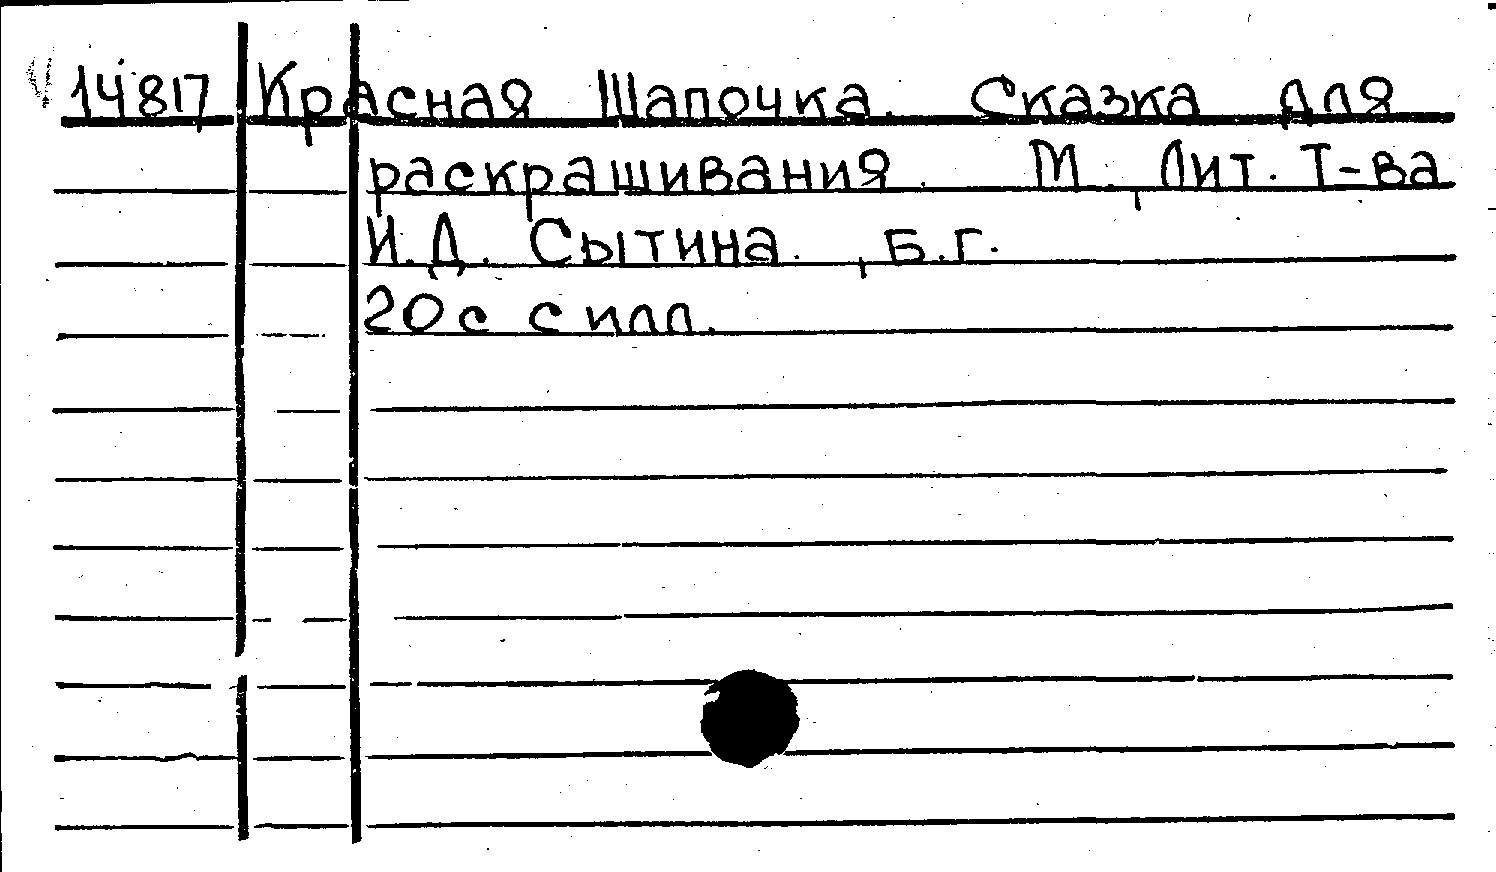 14817 Красная Шапочка. Сказка для
раскрашивания. М., Лит. Т-ва
И.Д. Сытина., б.г.
20 с с илл.